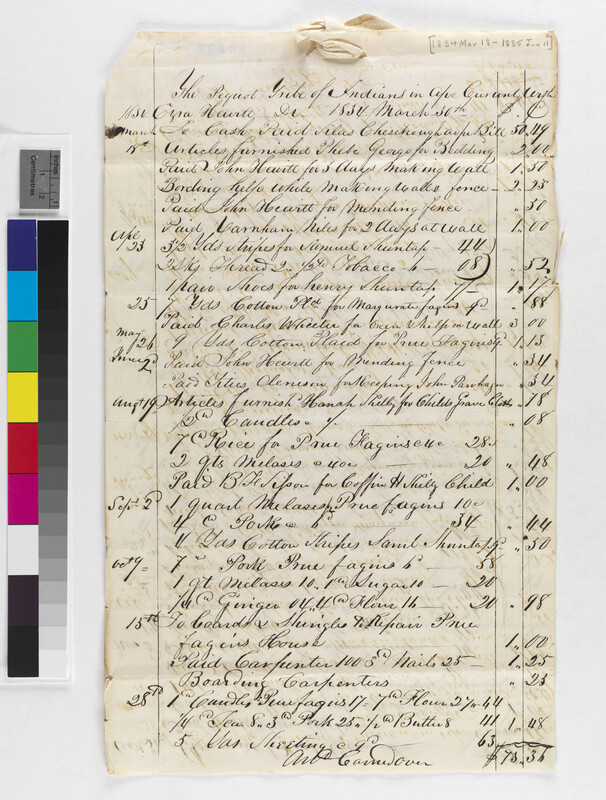 [1834 Mar 18 - 1835 Jun 11]
The Pequot Tribe of Indians in Acc Currant With
1834 Ezra Hewitt Dr 1834 March 30th $ . C
March To Cash Paid Silas Chesebrough as pr Bill 50.49
18th Articles furnished Phebe George for Bedding 2.00
Paid John Hewitt for 3 days Making Wall 1.50
Bording help while Making Wall & fence - 2.25
Paid John Hewitt for Mending fence - " 50
Paid Varnham Niles for 2 days at wall 1.00
Apr 23 3½ Yds Stripes for Samuel Shuntap - 44
2 Sks Thread 2 - ½ lb Tobacco 6 - 08) " 52
1 pair Shoes for Henry Shuntap 7/- 1.17
25 7 Yds Cotton Pld for Margurate fagins 9d " 88
Paid Charles Wheeler for Ezra Shelp on Wall 3 00
May 26 9 Yds Cotton Plaid for Prue Fagins 9d 1.13
June 2d Paid John Hewitt for Mending fence " 34
Paid Clemson for Keeping John " 34
Augt 19 Articles furnish Hanah Skelly for Childs Grave Cloths " 18
½ lb Candles " 08
7 lb Rice for Prue Fagins c 4c 28
2 qts Melases c 10c - 20 " 48
Paid B F Sisson for Coffin H Skelly Child 1.00
Sept 2d 1 quart Melases Prue fagins 10c
4 lb Pork c 34 " 44
4 Yds Cotton Stripes Saml Shuntap 9d " 50
Oct 9 = 7 lb Pork Prue fagins 58
1 qt Melases 10. 1 lb Sugar 10 - 20
¼ lb Ginger 04. 4 lb Flour 16 - 20 " 98
15th To boards & Shingles to Repair Prue
fagins House 1.00
Paid Carpenter 100 5d Nails 25 - 1.25
Boarding Carpenters " 25
28th 1 lb Candles Prue fagins 17 - 7 lb Flour 27 - 44
¼ lb Tea 8. 3 lb Pork 25. ½ lb Butter 8 41 1.48
5 Yds Sheeting c 9d 63
Amt Carried over $73.36
Inches
Centimetres